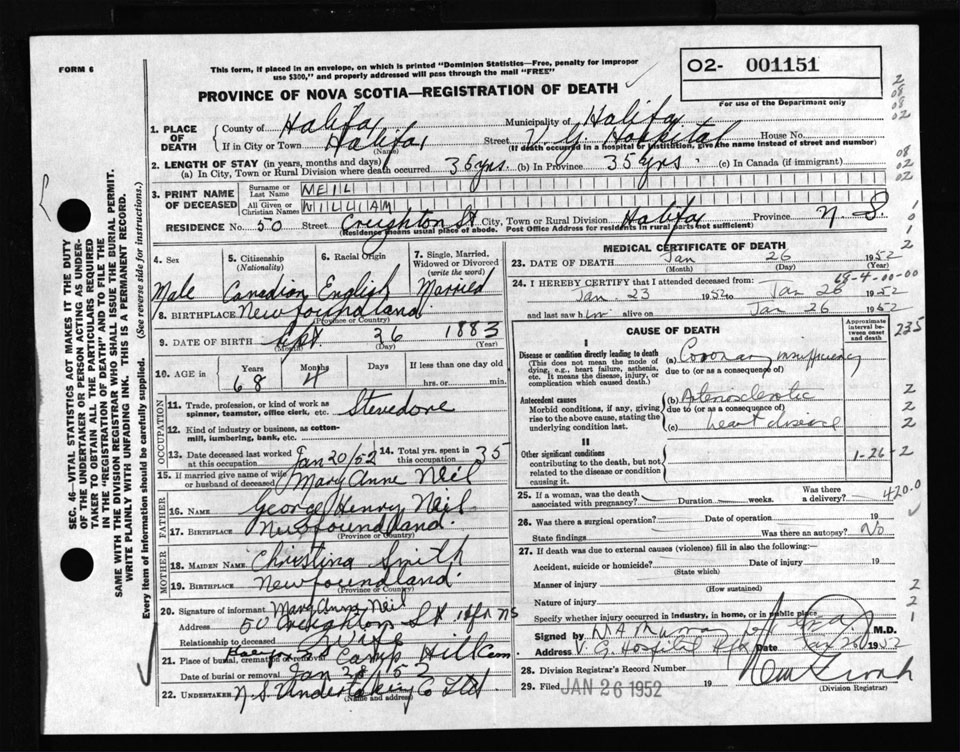 FORM 6
This form, if placed in an envelope, on which is printed "Dominion Statistics—Free, penalty for improper
use $300," and properly addressed will pass through the mail "FREE"
PROVINCE OF NOVA SCOTIA—REGISTRATION OF DEATH
O2- 001151
For use of the Department only
1. PLACE OF DEATH
County of Halifax Municipality of Halifax
If in City or Town Halifax Street V. G. Hospital House No.
(Name) (If death occurred in a hospital or institution, give the name instead of street and number)
2. LENGTH OF STAY (in years, months and days)
(a) In City, Town or Rural Division where death occurred 35 yrs. (b) In Province 35 yrs (c) In Canada (if immigrant)
3. PRINT NAME OF DECEASED
Surname or Last Name NEIL
All Given or Christian Names WILLIAM
RESIDENCE No. 50 Street Creighton St City, Town or Rural Division Halifax Province N. S.
(Residence means usual place of abode. Post Office Address for residents in rural parts not sufficient)
4. Sex Male
5. Citizenship (Nationality) Canadian
6. Racial Origin English
7. Single, Married, Widowed or Divorced (write the word) Married
8. BIRTHPLACE Newfoundland
(Province or Country)
9. DATE OF BIRTH Sept. 26 1883
(Month) (Day) (Year)
10. AGE in Years 68 Months 4 Days If less than one day old
hrs. or min.
OCCUPATION
11. Trade, profession, or kind of work as
spinner, teamster, office clerk, etc. Stevedore
12. Kind of industry or business, as cotton-
mill, lumbering, bank, etc.
13. Date deceased last worked at this occupation Jan 20/52
14. Total yrs. spent in this occupation 35
15. If married give name of wife or husband of deceased Mary Anne Neil
FATHER
16. NAME George Henry Neil
17. BIRTHPLACE Newfoundland.
(Province or Country)
MOTHER
18. MAIDEN NAME Christina Smith
19. BIRTHPLACE Newfoundland.
(Province or Country)
20. Signature of informant Mary Anne Neil
Address 50 Creighton St Hfx NS
Relationship to deceased Wife
21. Place of burial, cremation or removal Halifax NS Camp Hill Cem
Date of burial or removal Jan 28 52
22. UNDERTAKER N. S. Undertaking Co Ltd
(Name and address)
MEDICAL CERTIFICATE OF DEATH
23. DATE OF DEATH Jan 26 1952
(Month) (Day) (Year)
69-4-00-00
24. I HEREBY CERTIFY that I attended deceased from:
Jan 23 1952 to Jan 26 1952
and last saw him alive on Jan 26 1952
CAUSE OF DEATH
Approximate interval between onset and death
235
I
Disease or condition directly leading to death
(This does not mean the mode of
dying, e.g., heart failure, asthenia,
etc. It means the disease, injury, or
complication which caused death.)
(a) Coronary insufficiency
due to (or as a consequence of)
Antecedent causes
Morbid conditions, if any, giving
rise to the above cause, stating the
underlying condition last.
(b) Arteriosclerotic
due to (or as a consequence of)
(c) heart disease
II
Other significant conditions
contributing to the death, but not
related to the disease or condition
causing it.
1-26-2
25. If a woman, was the death
associated with pregnancy? Duration weeks. Was there a delivery?
420.0
26. Was there a surgical operation? Date of operation 19
State findings Was there an autopsy? No
27. If death was due to external causes (violence) fill in also the following:
Accident, suicide or homicide? Date of injury 19
(State which)
Manner of injury
(How sustained)
Nature of injury
Specify whether injury occurred in industry, in home, or in public place
Signed by M.D.
Address V. G. Hospital Hfx Date Jan 26 1952
28. Division Registrar's Record Number
29. Filed JAN 26 1952 19
(Division Registrar)
SEC. 46—VITAL STATISTICS ACT MAKES IT THE DUTY
OF THE UNDERTAKER OR PERSON ACTING AS UNDER-
TAKER TO OBTAIN ALL THE PARTICULARS REQUIRED
IN THE "REGISTRATION OF DEATH" AND TO FILE THE
SAME WITH THE DIVISION REGISTRAR WHO SHALL ISSUE THE BURIAL PERMIT.
WRITE PLAINLY WITH UNFADING INK. THIS IS A PERMANENT RECORD.
Every item of information should be carefully supplied. (See reverse side for instructions.)